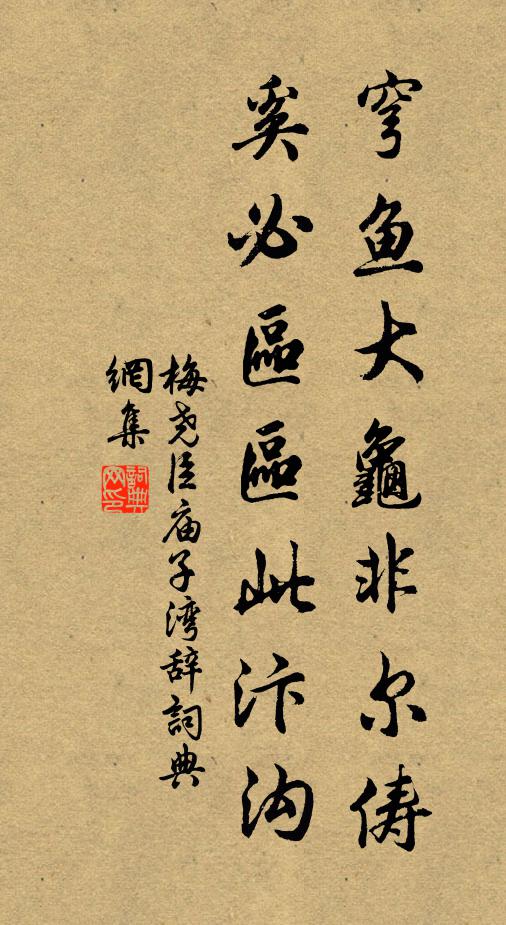 穹鱼大龜非尔俦
奚必區區此汴沟
梅尧臣庙子湾辞詞典
網集
詞典网印